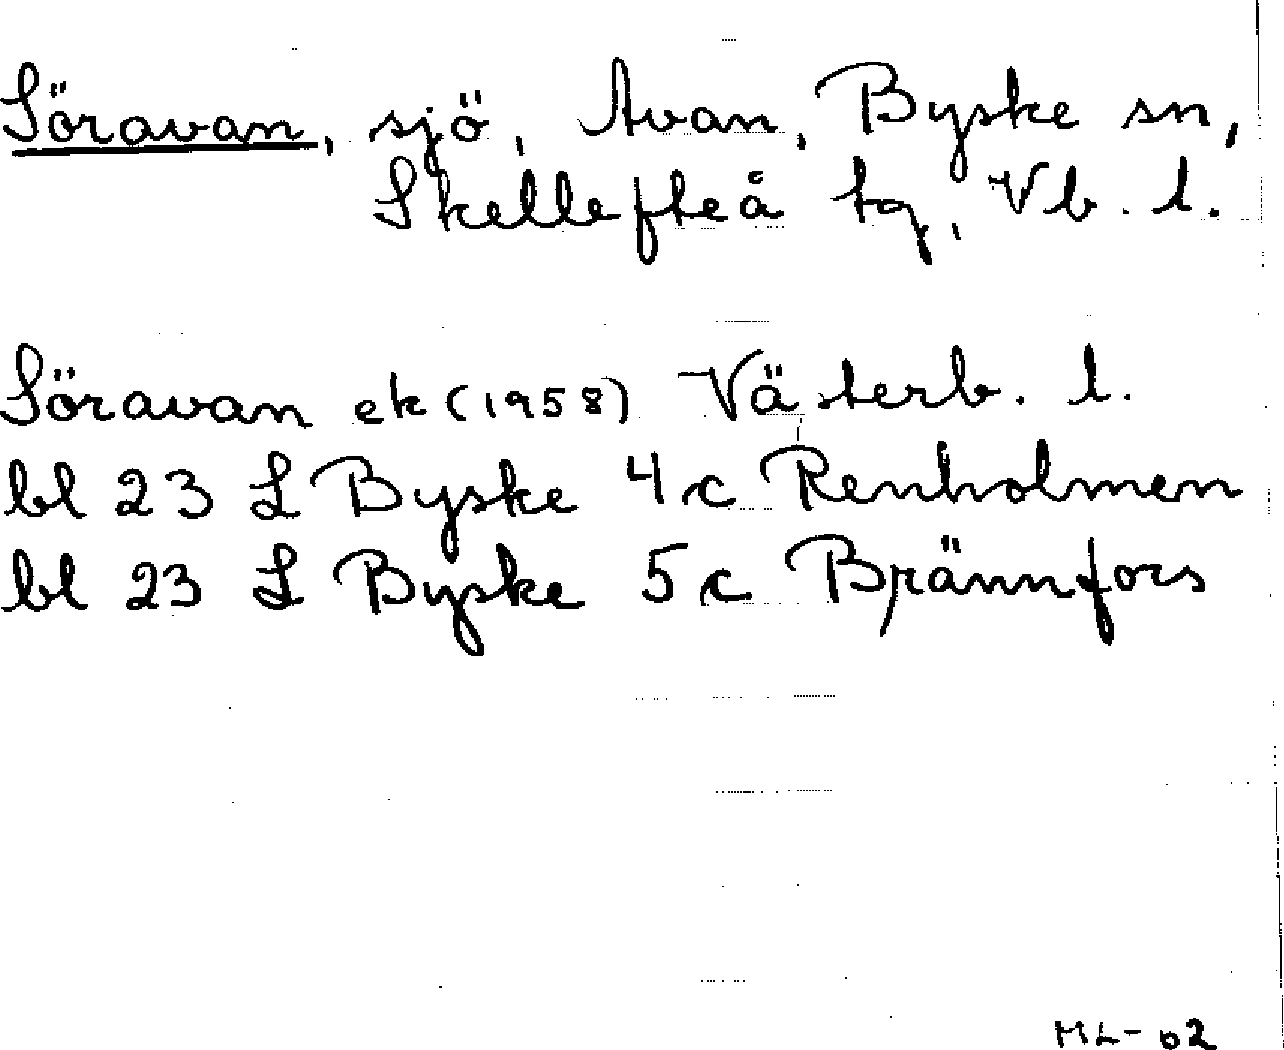 Söravan, sjö, Avan, Byske sn,
Skellefteå tg, Vb. l.
Söravan ek (1958) Västerb. l.
bl 23 L Byske 4c Renholmen
bl 23 L Byske 5c Brännfors
ML-62